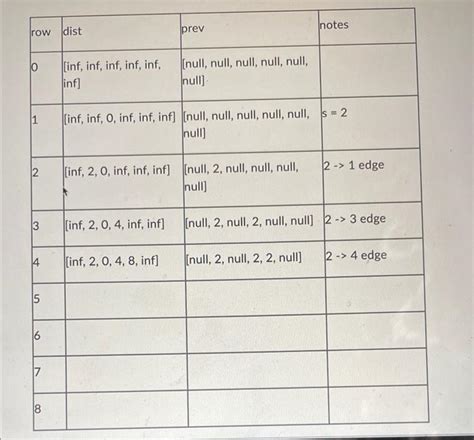 row dist prev notes
0 [inf, inf, inf, inf, inf, [null, null, null, null, null,
inf] null]
1 [inf, inf, 0, inf, inf, inf] [null, null, null, null, null, s = 2
null]
2 [inf, 2, 0, inf, inf, inf] [null, 2, null, null, null, 2 -> 1 edge
null]
3 [inf, 2, 0, 4, inf, inf] [null, 2, null, 2, null, null] 2 -> 3 edge
4 [inf, 2, 0, 4, 8, inf] [null, 2, null, 2, 2, null] 2 -> 4 edge
5
6
7
8